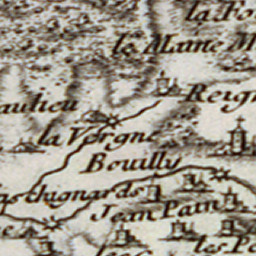 la Fo
le Maine M
Reign
aulieu
la Vergne
Bouilly
as chignards
Jean Pain
les Pe